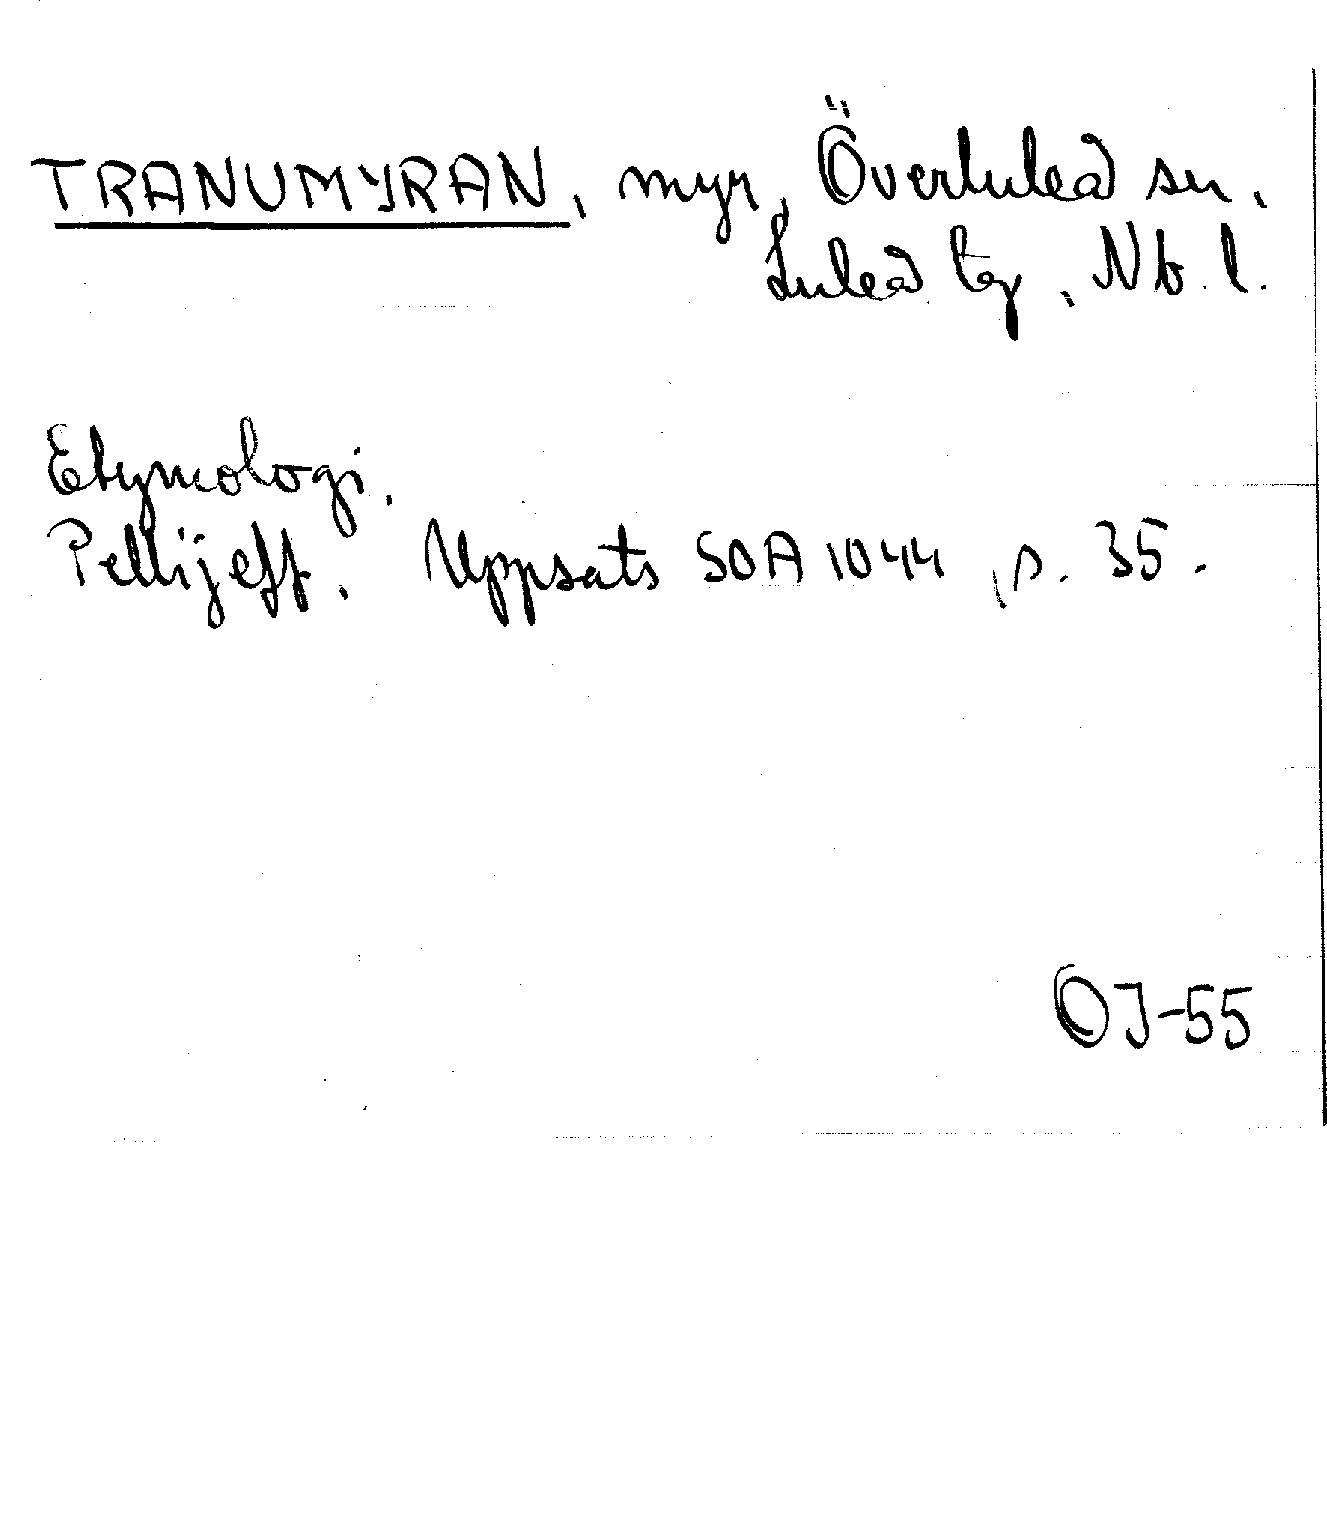 TRANUMYRAN, myr, Överluleå sn,
Luleå tg, Nb. l.
Etymologi.
Pellijeff. Uppsats SOA 1044, s. 35.
OJ-55